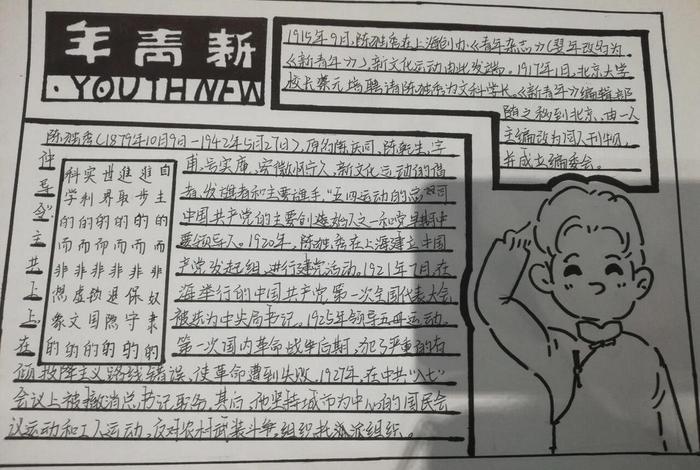 年青新
.YOUTH NEW
1915年9月,陈独秀在上海创办《青年杂志》(翌年改为
《新青年》),新文化运动由此发端。1917年1月,北京大学
校长蔡元培聘请陈独秀为文科学长。《新青年》编辑部
随之移到北京,由一人
主编改为同人刊物,
并成立编委会。
陈独秀(1879年10月9日—1942年5月27日),原名庆同,乾生,字
仲甫,号实庵,安徽怀宁人,新文化运动的倡
导者、发起者和主要旗手,"五四运动的总司
令",中国共产党的主要创始人之一和党早期
主要领导人。1920年,陈独秀在上海建立中国
共产党发起组,进行建党活动。1921年7月在
上海举行的中国共产党第一次全国代表大会
上被选为中央局书记。1925年领导五卅运动。
在第一次国内革命战争后期,犯了严重的右
倾投降主义路线错误,使革命遭到失败,1927年,在中共"八七"
会议上被撤消总书记职务,其后,他坚持城市为中心的国民会
议运动和工人运动,反对农村武装斗争,组织托派组织。
自主的而非奴隶的
进步的而非保守的
进取的而非退隐的
世界的而非锁国的
实利的而非虚文的
科学的而非想象的